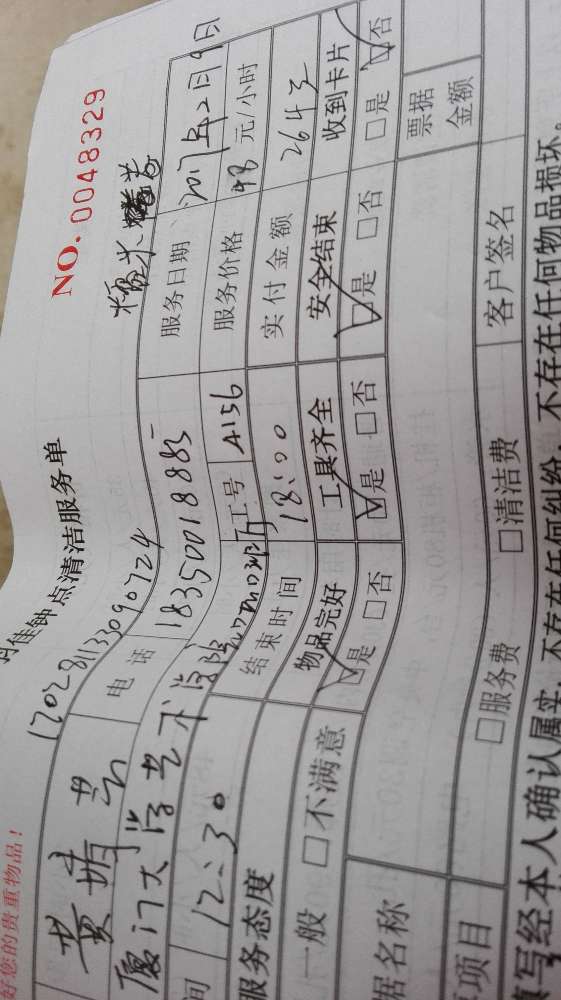 好您的贵重物品！
NO. 0048329
佳钟点清洁服务单
糯米
电话 18350018885 服务日期 2017年2月9日
厦门大学艺术学院 工号 A156 服务价格 48元/小时
间 12:30 结束时间 18:00 实付金额 264元
服务态度 物品完好 工具齐全 安全结束 收到卡片
一般 □不满意 ☑是 □否 ☑是 □否 ☑是 □否 □是 ☑否
据名称 票据金额
项目 □服务费 □清洁费 客户签名
填写经本人确认属实，不存在任何纠纷，不存在任何物品损坏。